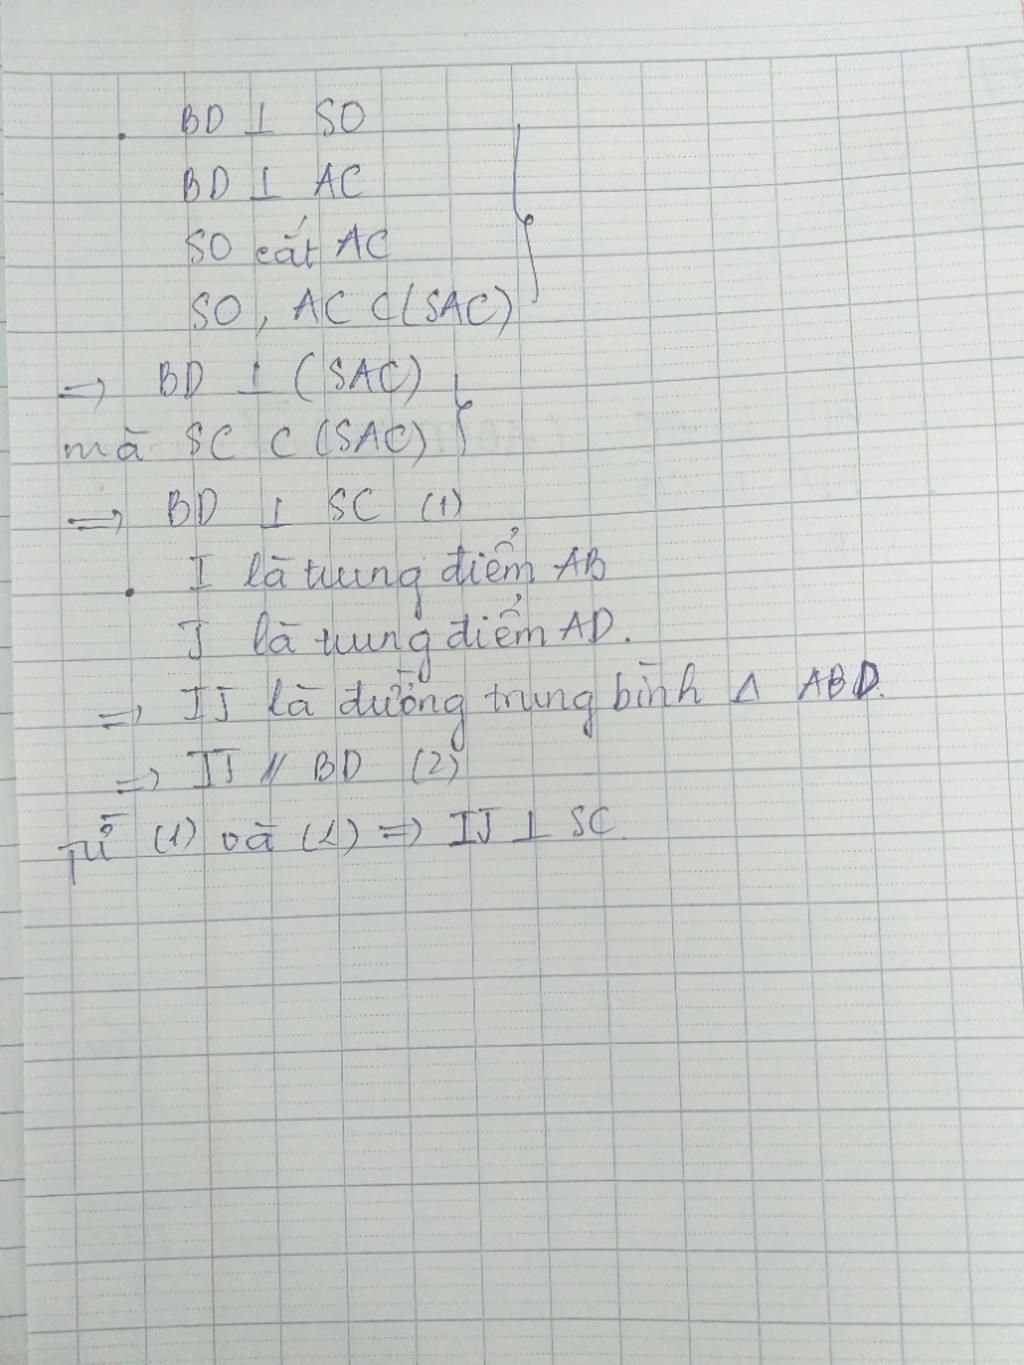 . BD ⊥ SO
BD ⊥ AC
SO cắt AC
SO, AC ⊂ (SAC)
=> BD ⊥ (SAC)
mà SC ⊂ (SAC)
=> BD ⊥ SC (1)
. I là trung điểm AB
J là trung điểm AD.
=> IJ là đường trung bình Δ ABD.
=> IJ // BD (2)
Từ (1) và (2) => IJ ⊥ SC